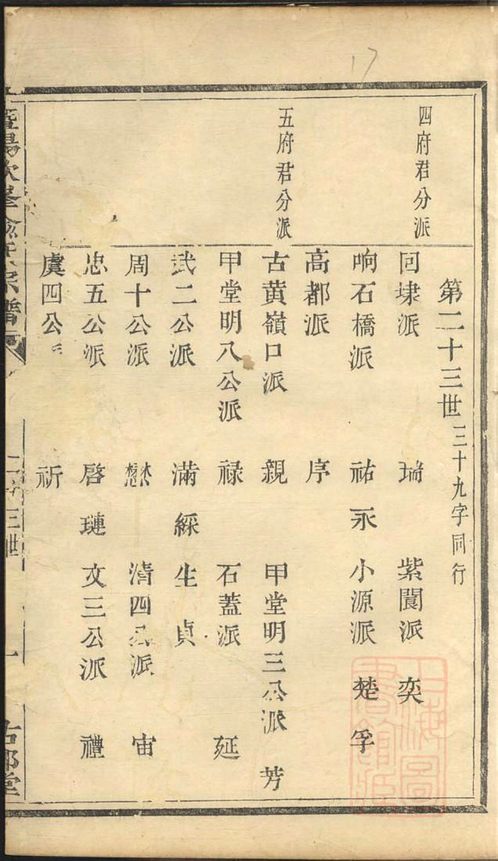 17
第二十三世三十九字同行
四府君分派
囘埭派 瑞 紫閬派 奕
响石橋派 祐 永 小源派 楚 孚
高都派 序
五府君分派
古黄嶺口派 親 甲堂明三公派 芳
甲堂明八公派 禄 石蓋派 延
武二公派 滿 綵 生 貞
周十公派 懋 清四公派 宙
忠五公派 啓 璉 文三公派 禮
虞四公派 祈
暨陽次峯俞氏宗譜
二十三世
一
上海圖書館藏